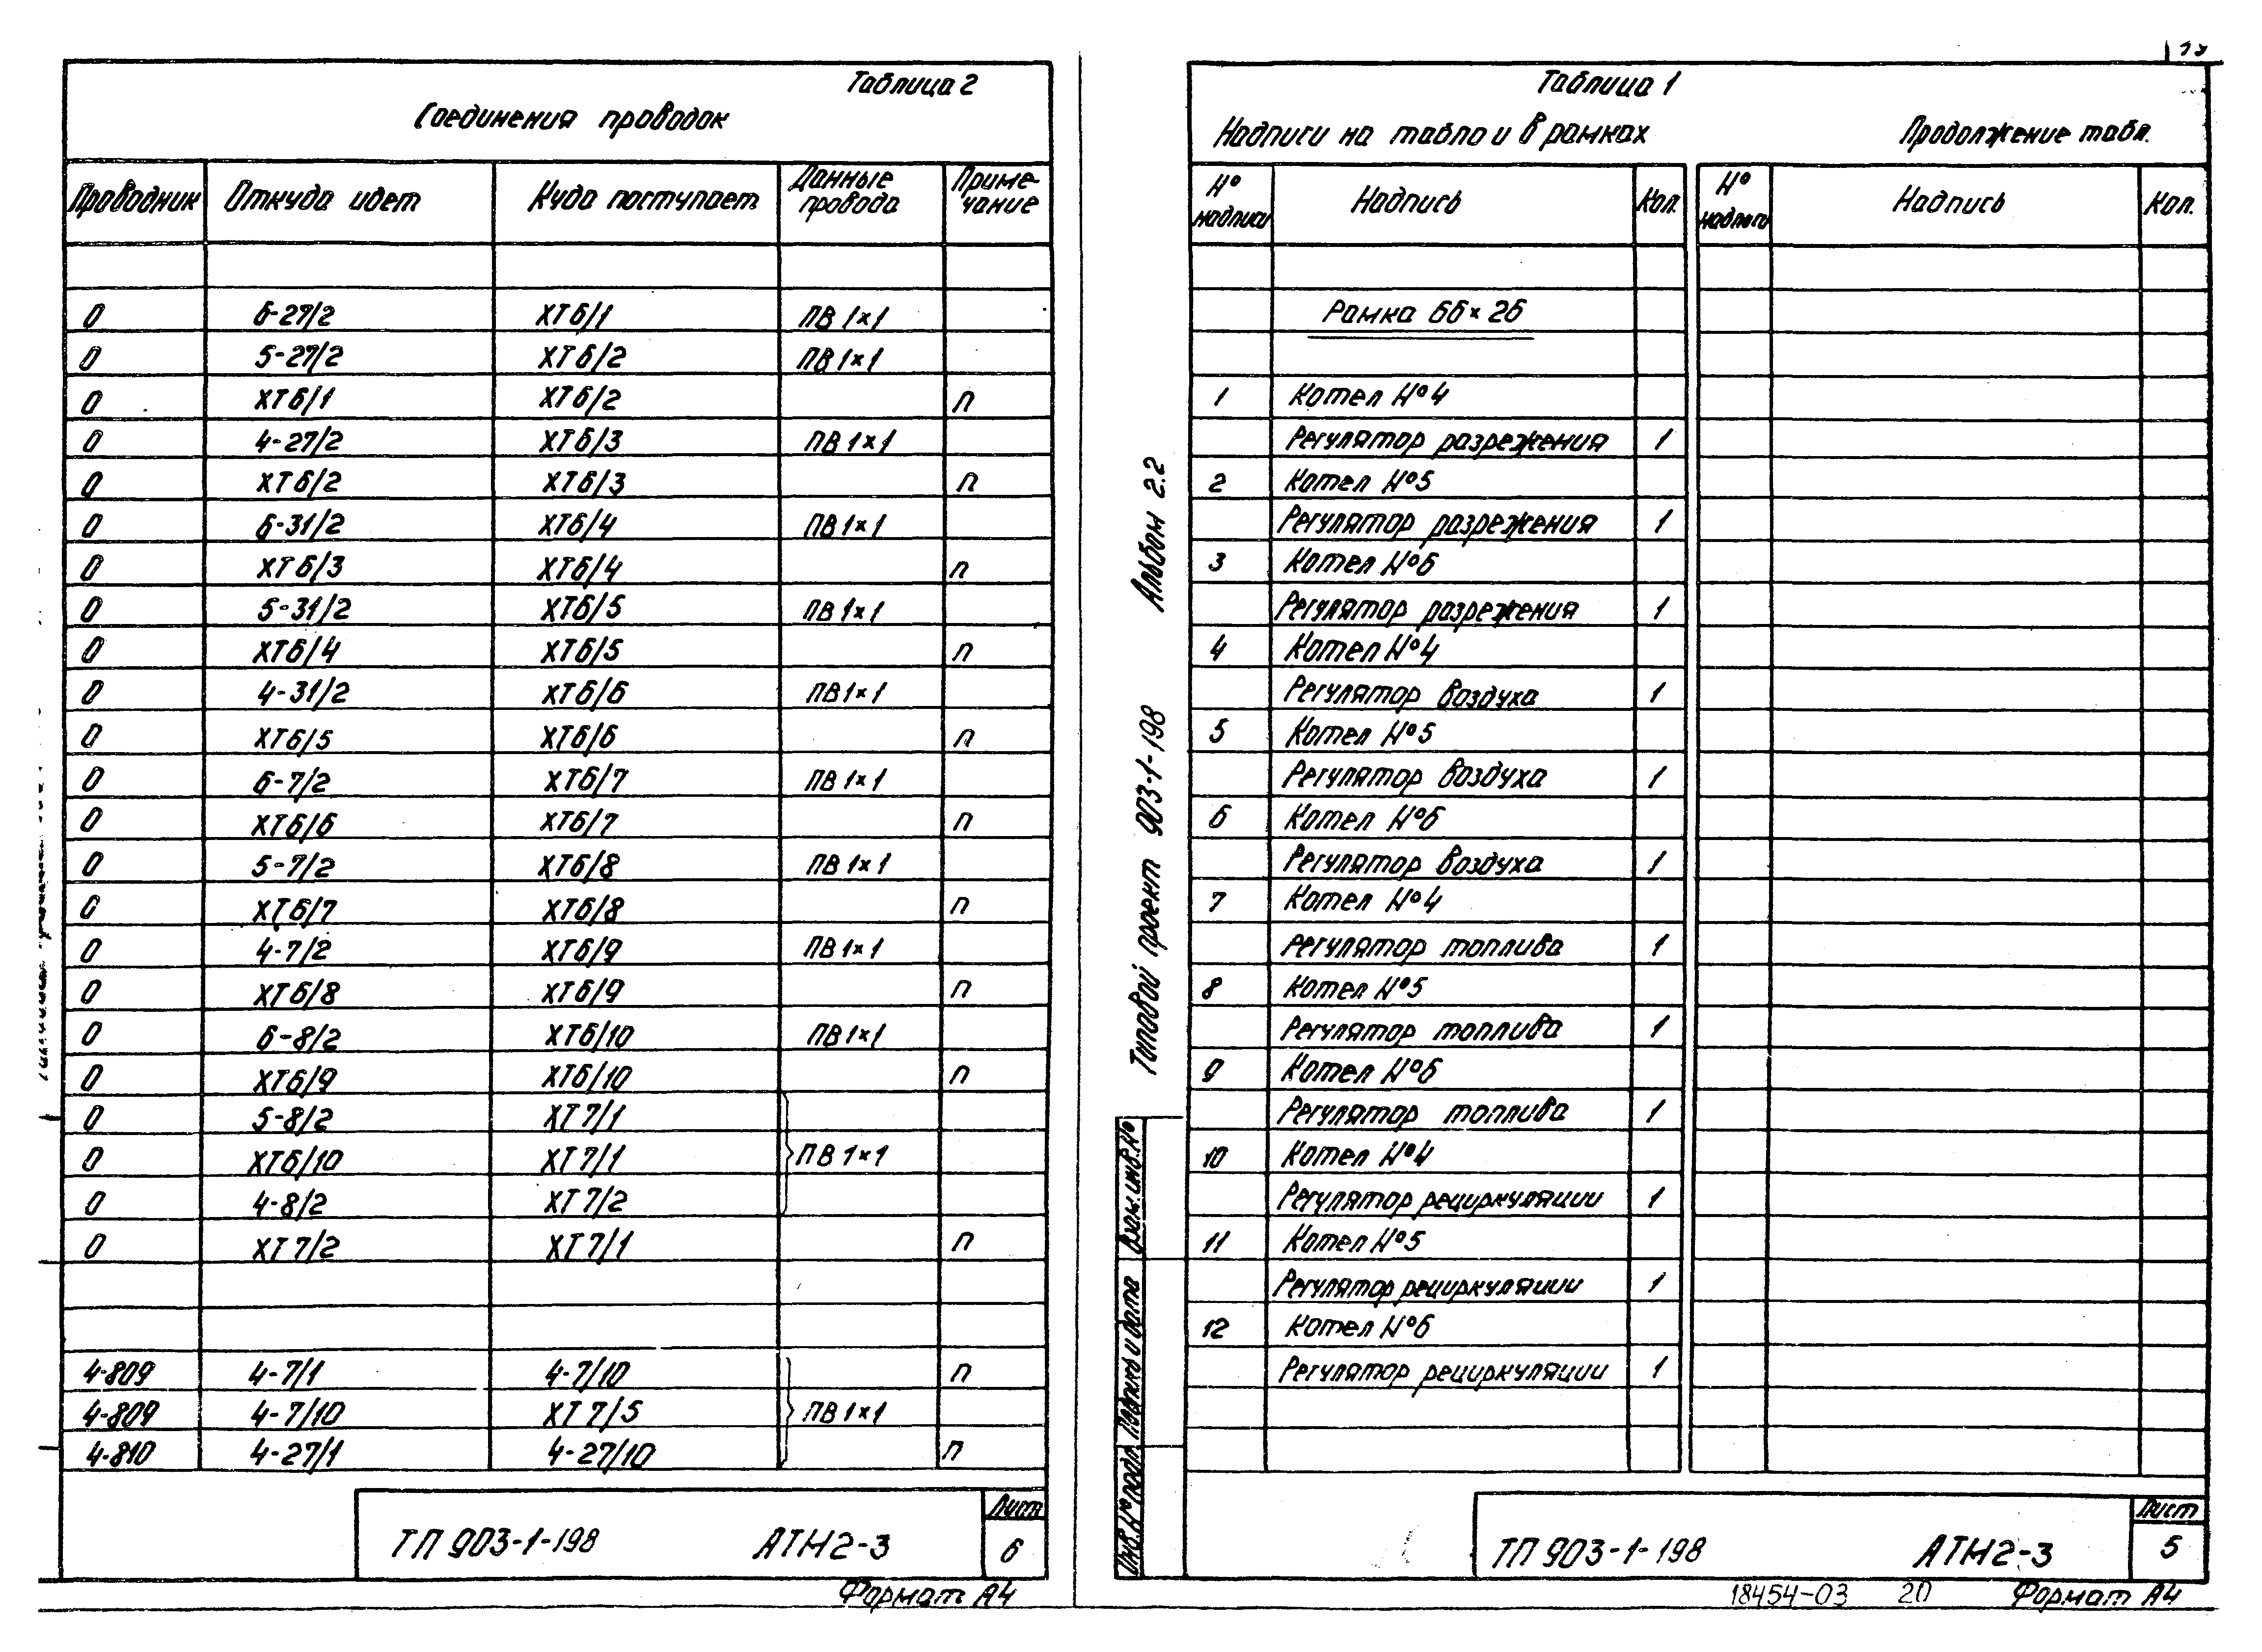 Таблица 2
Соединения проводок
Проводник Откуда идет Куда поступает Данные провода Приме-чание
0 6-27/2 ХТ6/1 ПВ 1×1
0 5-27/2 ХТ6/2 ПВ 1×1
0 ХТ6/1 ХТ6/2 п
0 4-27/2 ХТ6/3 ПВ 1×1
0 ХТ6/2 ХТ6/3 п
0 6-31/2 ХТ6/4 ПВ 1×1
0 ХТ6/3 ХТ6/4 п
0 5-31/2 ХТ6/5 ПВ 1×1
0 ХТ6/4 ХТ6/5 п
0 4-31/2 ХТ6/6 ПВ 1×1
0 ХТ6/5 ХТ6/6 п
0 6-7/2 ХТ6/7 ПВ 1×1
0 ХТ6/6 ХТ6/7 п
0 5-7/2 ХТ6/8 ПВ 1×1
0 ХТ6/7 ХТ6/8 п
0 4-7/2 ХТ6/9 ПВ 1×1
0 ХТ6/8 ХТ6/9 п
0 6-8/2 ХТ6/10 ПВ 1×1
0 ХТ6/9 ХТ6/10 п
0 5-8/2 ХТ7/1
0 ХТ6/10 ХТ7/1 ПВ 1×1
0 4-8/2 ХТ7/2
0 ХТ7/2 ХТ7/1 п
4-809 4-7/1 4-7/10 п
4-809 4-7/10 ХТ7/5 ПВ 1×1
4-810 4-27/1 4-27/10 п
ТП 903-1-198 АТМ2-3 Лист 6
Формат А4
Таблица 1
Надписи на табло и в рамках Продолжение табл.
№ надписи Надпись Кол. № надписи Надпись Кол.
Рамка 66×26
1 Котел №4
Регулятор разрежения 1
2 Котел №5
Регулятор разрежения 1
3 Котел №6
Регулятор разрежения 1
4 Котел №4
Регулятор воздуха 1
5 Котел №5
Регулятор воздуха 1
6 Котел №6
Регулятор воздуха 1
7 Котел №4
Регулятор топлива 1
8 Котел №5
Регулятор топлива 1
9 Котел №6
Регулятор топлива 1
10 Котел №4
Регулятор рециркуляции 1
11 Котел №5
Регулятор рециркуляции 1
12 Котел №6
Регулятор рециркуляции 1
Типовой проект 903-1-198 Альбом 2.2
Инв.№ подл. Подпись и дата Взам.инв.№
ТП 903-1-198 АТМ2-3 Лист 5
18454-03 20 Формат А4